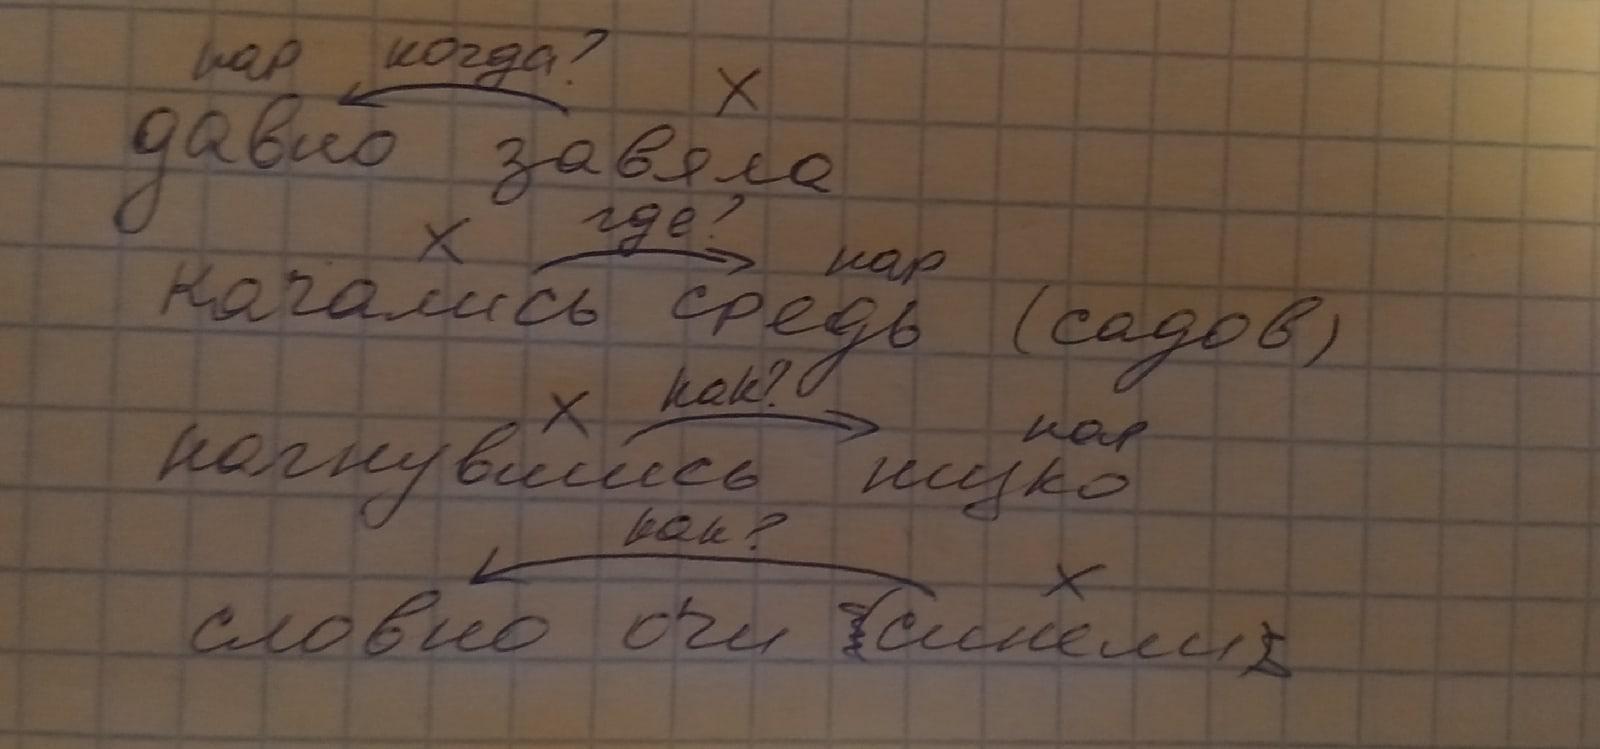 нар когда? х
давно завяла
х где? нар
качались средь (садов)
х как? нар
нагнувшись низко
как? х
словно очи (синели)